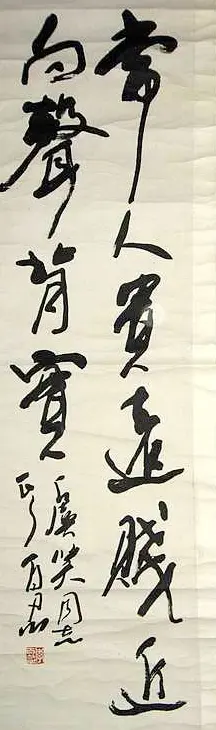 常人貴遠賤近
向聲背實
同志